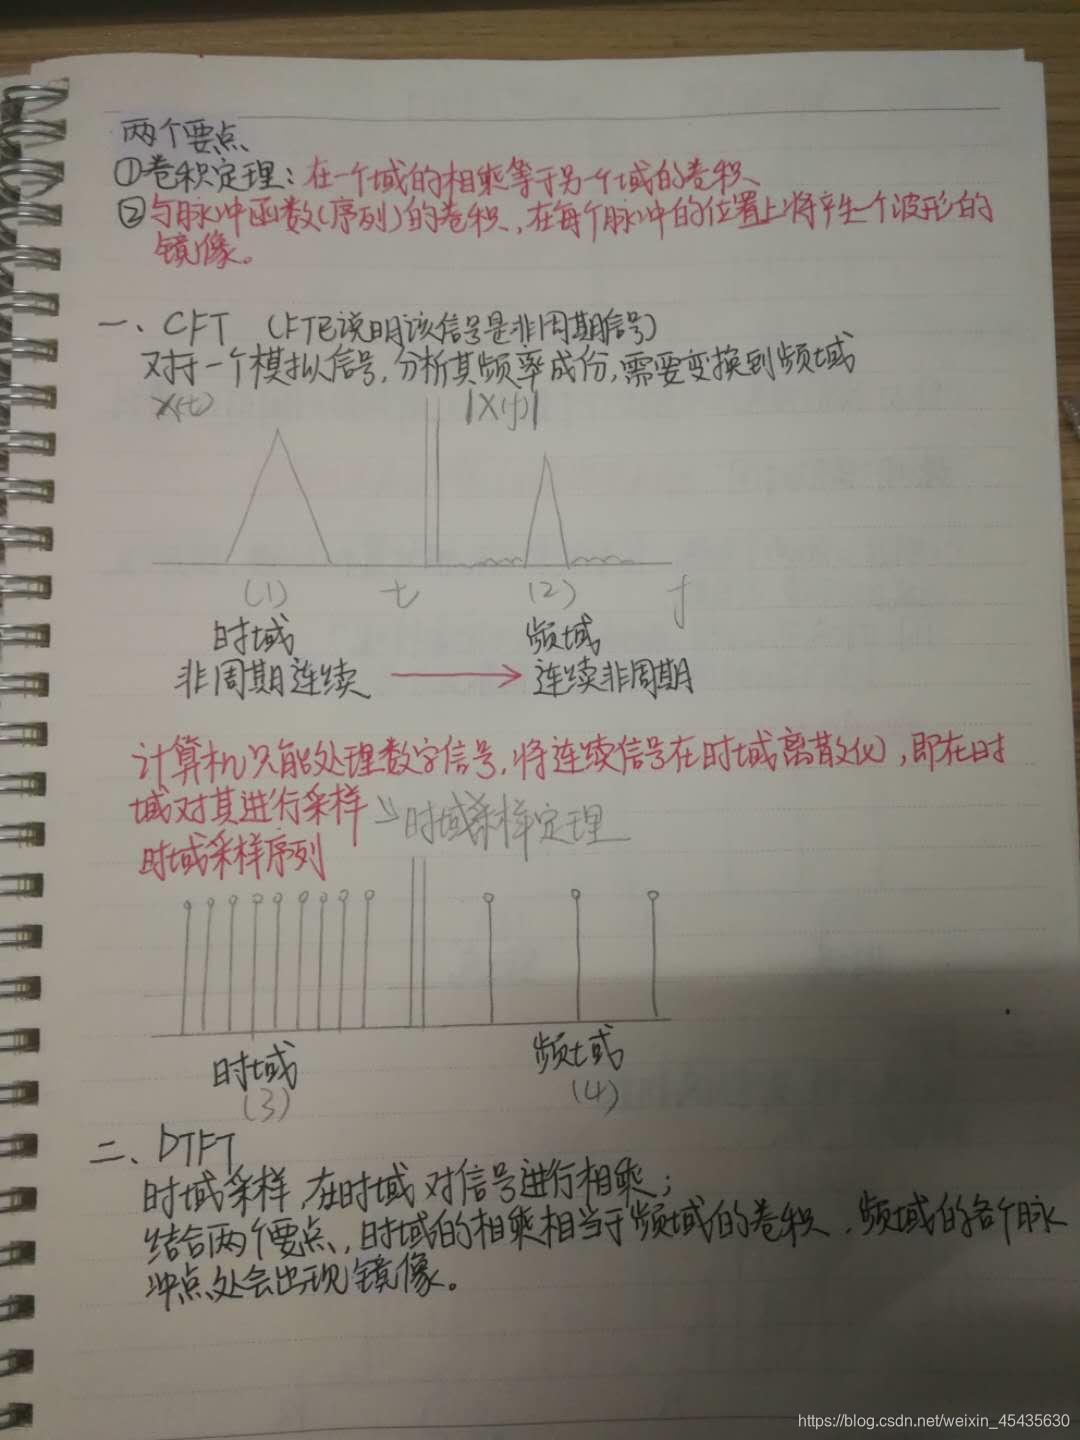 两个要点
①卷积定理：在一个域的相乘等于另一个域的卷积
②与脉冲函数(序列)的卷积，在每个脉冲的位置上将产生一个波形的
镜像。
一、CFT （FT已说明该信号是非周期信号）
对于一个模拟信号，分析其频率成份，需要变换到频域
x(t) |X(f)|
(1) t (2) f
时域 频域
非周期连续 连续非周期
计算机只能处理数字信号，将连续信号在时域离散化，即在时
域对其进行采样 时域采样定理
时域采样序列
时域 频域
(3) (4)
二、DTFT
时域采样，在时域对信号进行相乘；
结合两个要点，时域的相乘相当于频域的卷积，频域的各个脉
冲点处会出现镜像。
https://blog.csdn.net/weixin_45435630